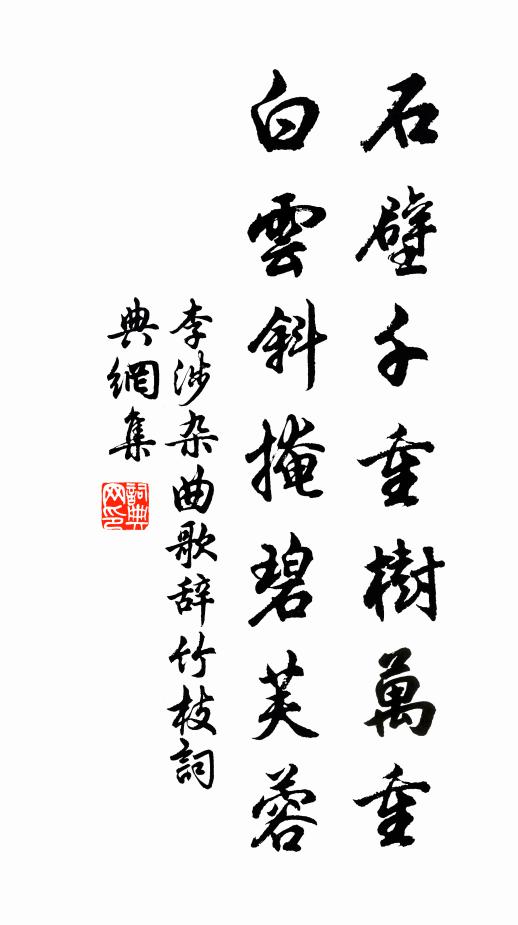 石壁千重樹萬重
白雲斜掩碧芙蓉
李涉杂曲歌辞竹枝詞
典網集
詞典网印